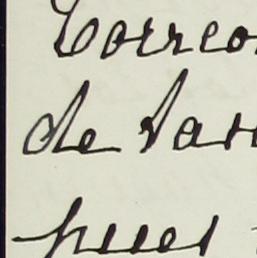 Correo
de Var
pues